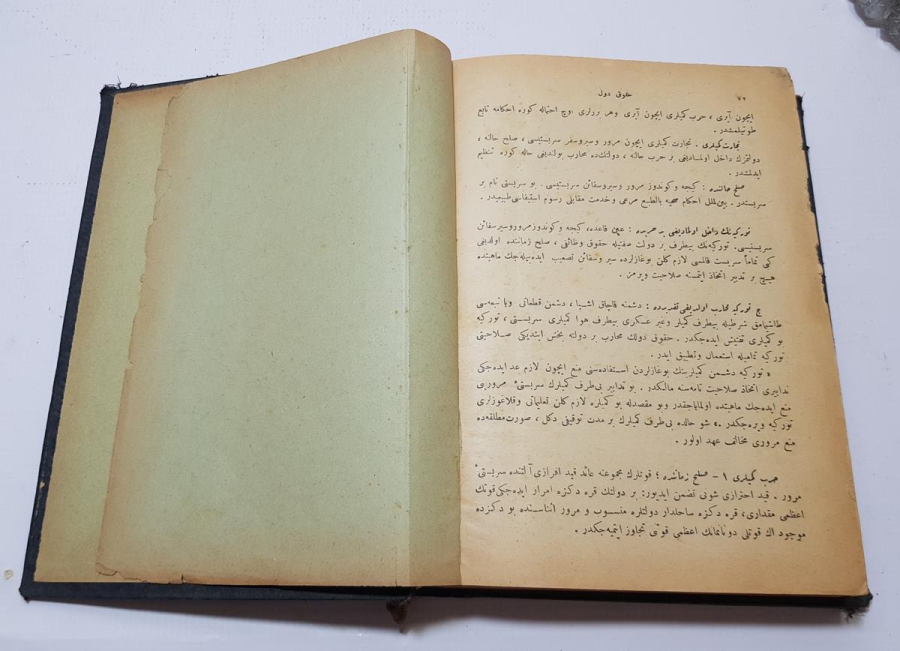 ٧٢
حقوق دول
ایچون آیری ، حرب کمیلری ایچون آیری وهر برلری اوچ احتماله کوره احکامه تابع
طوتیلمشدر .
تجارت کمیلری . تجارت کمیلری ایچون مرور وسیروسفر سربستیسی ، صلح حالنه ،
دولتلرك داخل اولمادیغی بر حرب حالنه ، دولتكده محارب بولندیغی حاله کوره تنظیم
ایدلمشدر .
صلح حالنده : کیجه وکوندوز مرور وسیروسفائن سربستیسی . بو سربستی تام بر
سربستدر . بین‌الملل احکام صحیه بالطبع مرعی وخدمت مقابلی رسوم استیفاسی طبیعیدر .
تورکیه‌نك داخل اولمادیغی بر حربده : عین قاعده، کیجه وکوندوز مرور وسیرسفائن
سربستیسی. تورکیه‌نك بیطرف بر دولت صفتیله حقوق وظائفی ، صلح زماننده اولدیغی
کبی تماماً سربست قالمسی لازم کلن بوغازلرده سیر وسفائن تصعیب ایده‌بیله‌جك ماهیتده
هیچ بر تدبیر اتخاذ ایتمسنه صلاحیت ویرمز .
تورکیه محارب اولدیغی تقدیرده : دشمنه قاچاق اشیا ، دشمن قطعاتی ویا تبعه‌سی
طاشیمامق شرطیله بیطرف کمیلر وغیر عسکری بیطرف هوا کمیلری سربستی ، تورکیه
بو کمیلری تفتیش ایده‌جکدر . حقوق دولك محارب بر دولته بخش ایتدیکی صلاحیتی
تورکیه تمامیله استعمال وتطبیق ایدر .
« تورکیه دشمن کمیلرینك بوغازلردن استفاده‌سنی منع ایچون لازم عد ایده‌جکی
تدابیری اتخاذ صلاحیت تامه‌سنه مالکدر . بو تدابیر بی‌طرف کمیلرك سربستیٔ مرورینی
منع ایده‌جك ماهیتده اولمایاجقدر وبو مقصدله بو کمیلره لازم کلن تعلیماتی وقلاغوزلری
تورکیه ویره‌جکدر .» شو حالده بی‌طرف کمیلرك بر مدت توقیفی دکل ، صورت‌مطلقه‌ده
منع مروری مخالف عهد اولور .
حرب کمیلری ١ - صلح زماننده ؛ قوتلرك مجموعنه عائد قید افرازی آلتنده سربستیٔ
مرور . قید احترازی شونی تضمن ایدیور: بر دولتك قره دکزه امرار ایده‌جکی قوتك
اعظمی مقداری، قره دکزه ساحلدار دولتلره منسوب و مرور اثناسنده بو دکزده
موجود اك قوتلی دونانمانك اعظمی قوتی تجاوز ایتمیه‌جکدر .